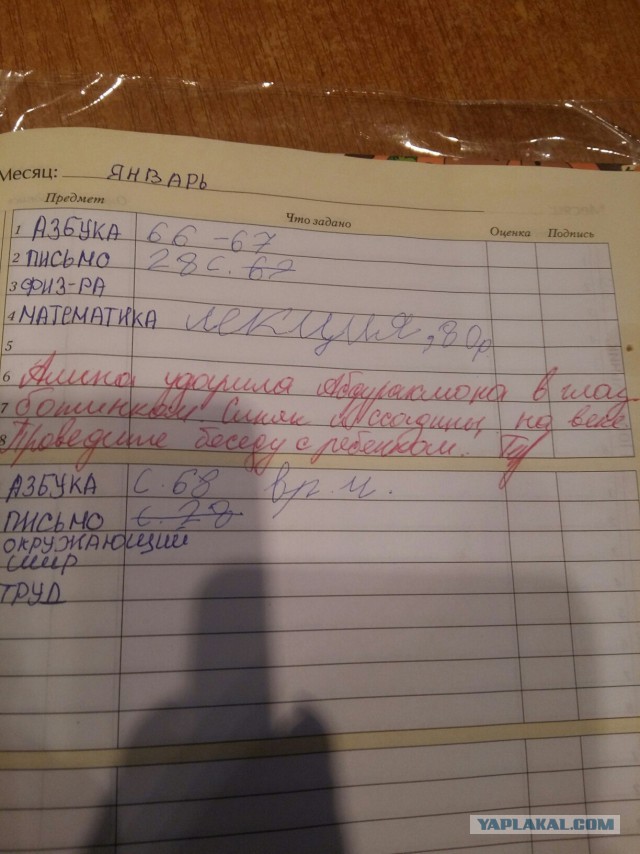 Месяц: ЯНВАРЬ
Предмет Что задано Оценка Подпись
1 АЗБУКА 66-67
2 ПИСЬМО 28 с. 67
3 ФИЗ-РА
4 МАТЕМАТИКА лекция,
5
6 Алина ударила Абдурахмона в глаз
7 ботинком. Синяк и ссадины на веке.
8 Проведите беседу с ребенком.
АЗБУКА С. 68 вр. и.
ПИСЬМО с. 28
ОКРУЖАЮЩИЙ
МИР
ТРУД
YAPLAKAL.COM